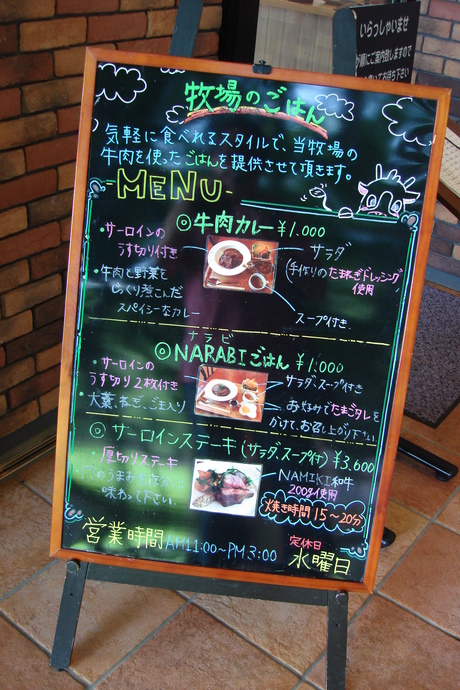 いらっしゃいませ
牧場のごはん
気軽に食べれるスタイルで、当牧場の
牛肉を使ったごはんを提供させて頂きます。
MENU
◎牛肉カレー ¥1.000
・サーロインの
うす切り付き
・牛肉と野菜を
じっくり煮こんだ
スパイシーなカレー
サラダ
(手作りのたまねぎドレッシング
使用)
スープ付き
ナラビ
◎NARABIごはん ¥1.000
・サーロインの
うす切り2枚付き
・大葉、ねぎ、ごま入り
サラダ、スープ付き
お好みでたまごタレを
かけて、お召し上がり下さい。
◎サーロインステーキ(サラダ、スープ付) ¥3.600
・厚切りステーキ
のうまみを
味わって下さい。
NAMIKI和牛
200g使用
焼き時間15〜20分
営業時間 AM11:00〜PM3:00
定休日
水曜日